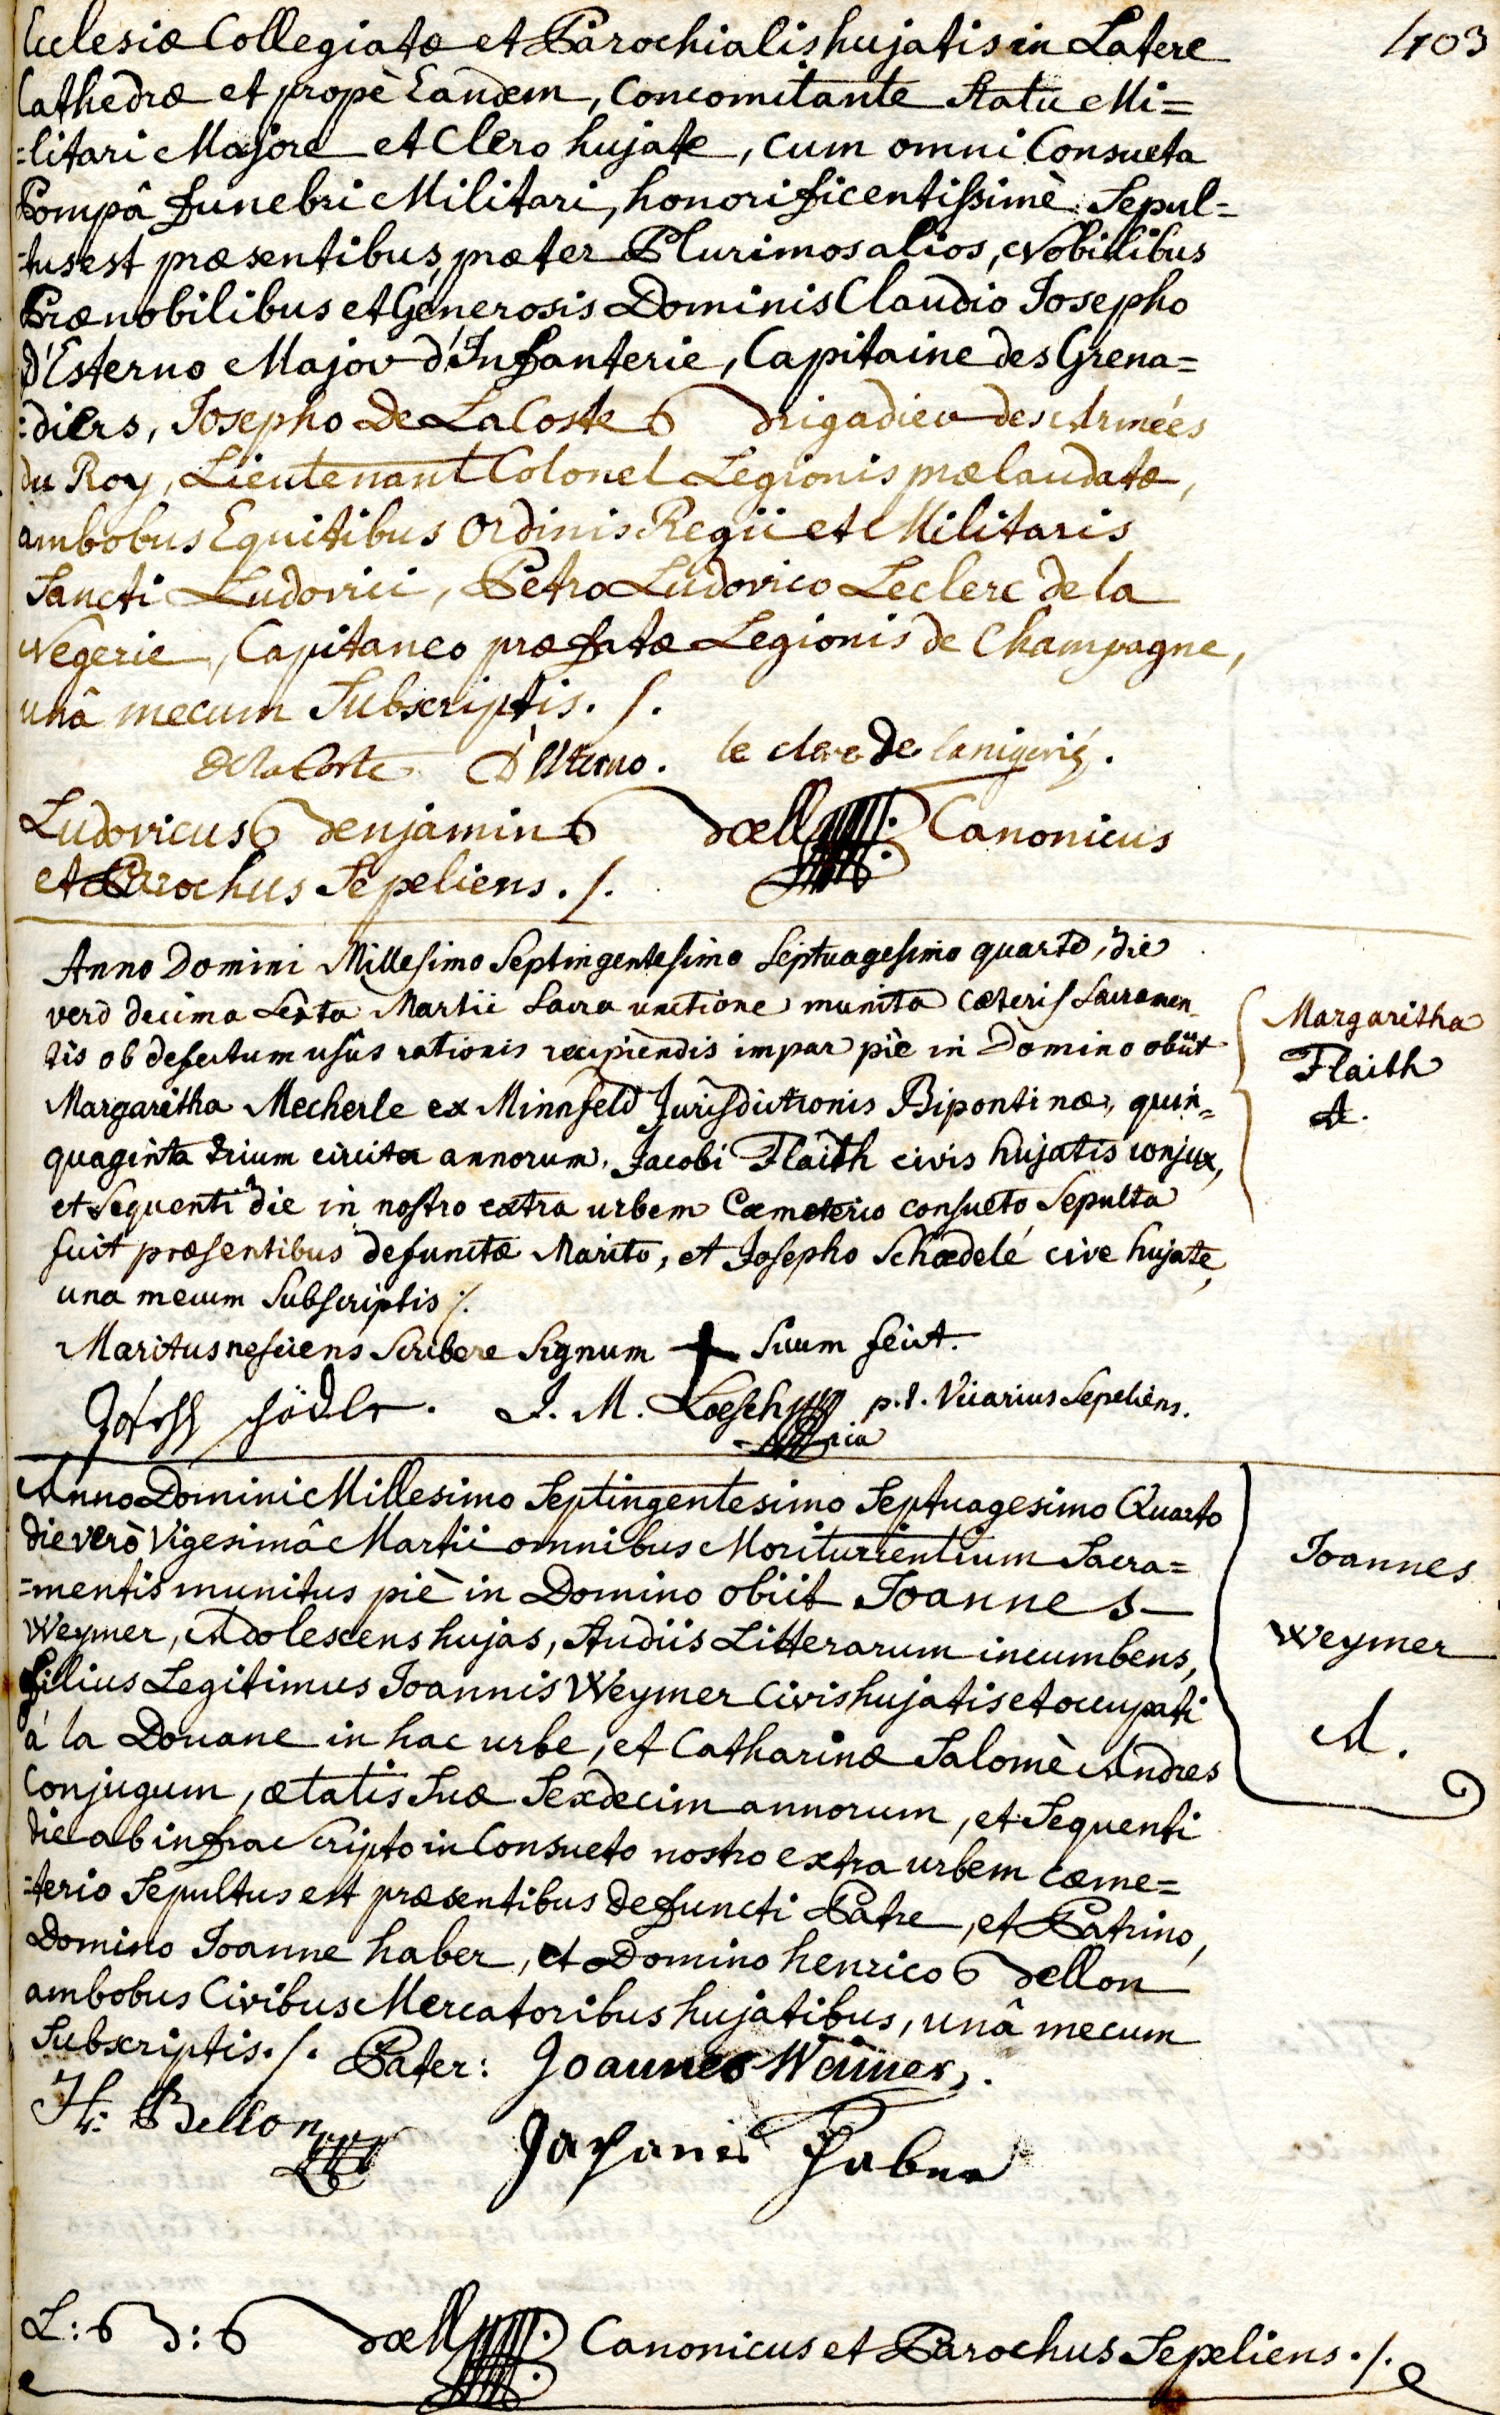 403
Ecclesiæ Collegiatæ et Parochialis hujatis in Latere
Cathedræ et propè Eandem, Concomitante Statu Mi=
=litari Majore et Clero hujate, cum omni Consueta
Pompâ funebri Militari, honorificentissimè Sepul=
=tus est præsentibus, præter Plurimos alios, Nobilibus
Prænobilibus et Generosis Dominis Claudio Josepho
d'Esterno Major d'Infanterie, Capitaine des Grena=
:diers, Josepho De La Coste Brigadier des Armées
du Roy, Lieutenant Colonel Legionis prælaudatæ,
ambobus Equitibus Ordinis Regii et Militaris
Sancti Ludovici, Petro Ludovico Leclerc de la
Negerie, Capitaneo præfatæ Legionis de Champagne,
unâ mecum Subscriptis. /.
De la Coste D'Esterno. le clerc De lanigerié.
Ludovicus Benjamin Bœll Canonicus
et Parochus Sepeliens. /.
Anno Domini Millesimo Septingentesimo Septuagesimo quarto, die
vero decima Sexta Martii Sacra unctione munita cæteris Sacramen-
tis ob defectum usûs rationis recipiendis impar piè in Domino obiit
Margaritha Mecherle ex Minnfeld Jurisdictionis Bipontinæ, quin=
quaginta trium circiter annorum, Jacobi Flaith civis hujatis conjux,
et Sequenti die in nostro extra urbem Cœmeterio consueto Sepulta
fuit præsentibus defunctæ Marito, et Josepho Schœdelé cive hujate,
una mecum Subscriptis /.
Maritus nesciens Scribere Signum + Suum fecit.
Joseph Schödle. J. M. Loesch p.t. Vicarius Sepeliens.
Margaritha
Flaith
A.
Anno Domini Millesimo Septingentesimo Septuagesimo Quarto
die verò Vigesimâ Martii omnibus Moriturientium Sacra=
=mentis munitus piè in Domino obiit Joannes
Weymer, Adolescens hujas, Studiis Litterarum incumbens,
filius Legitimus Joannis Weymer Civis hujatis et occupati
à la Douane in hac urbe, et Catharinæ Salomè Andres
Conjugum, ætatis Suæ Sexdecim annorum, et Sequenti
die ab infra Scripto in Consueto nostro extra urbem cœme=
=terio Sepultus est præsentibus defuncti Patre, et Patrino,
Domino Joanne haber, et Domino henrico Bellon
ambobus Civibus Mercatoribus hujatibus, unâ mecum
Subscriptis. /. Pater: Joannes Weimer.
H: Bellon Johanes Haber
Joannes
Weymer
A.
L: B: Bœll Canonicus et Parochus Sepeliens. /.